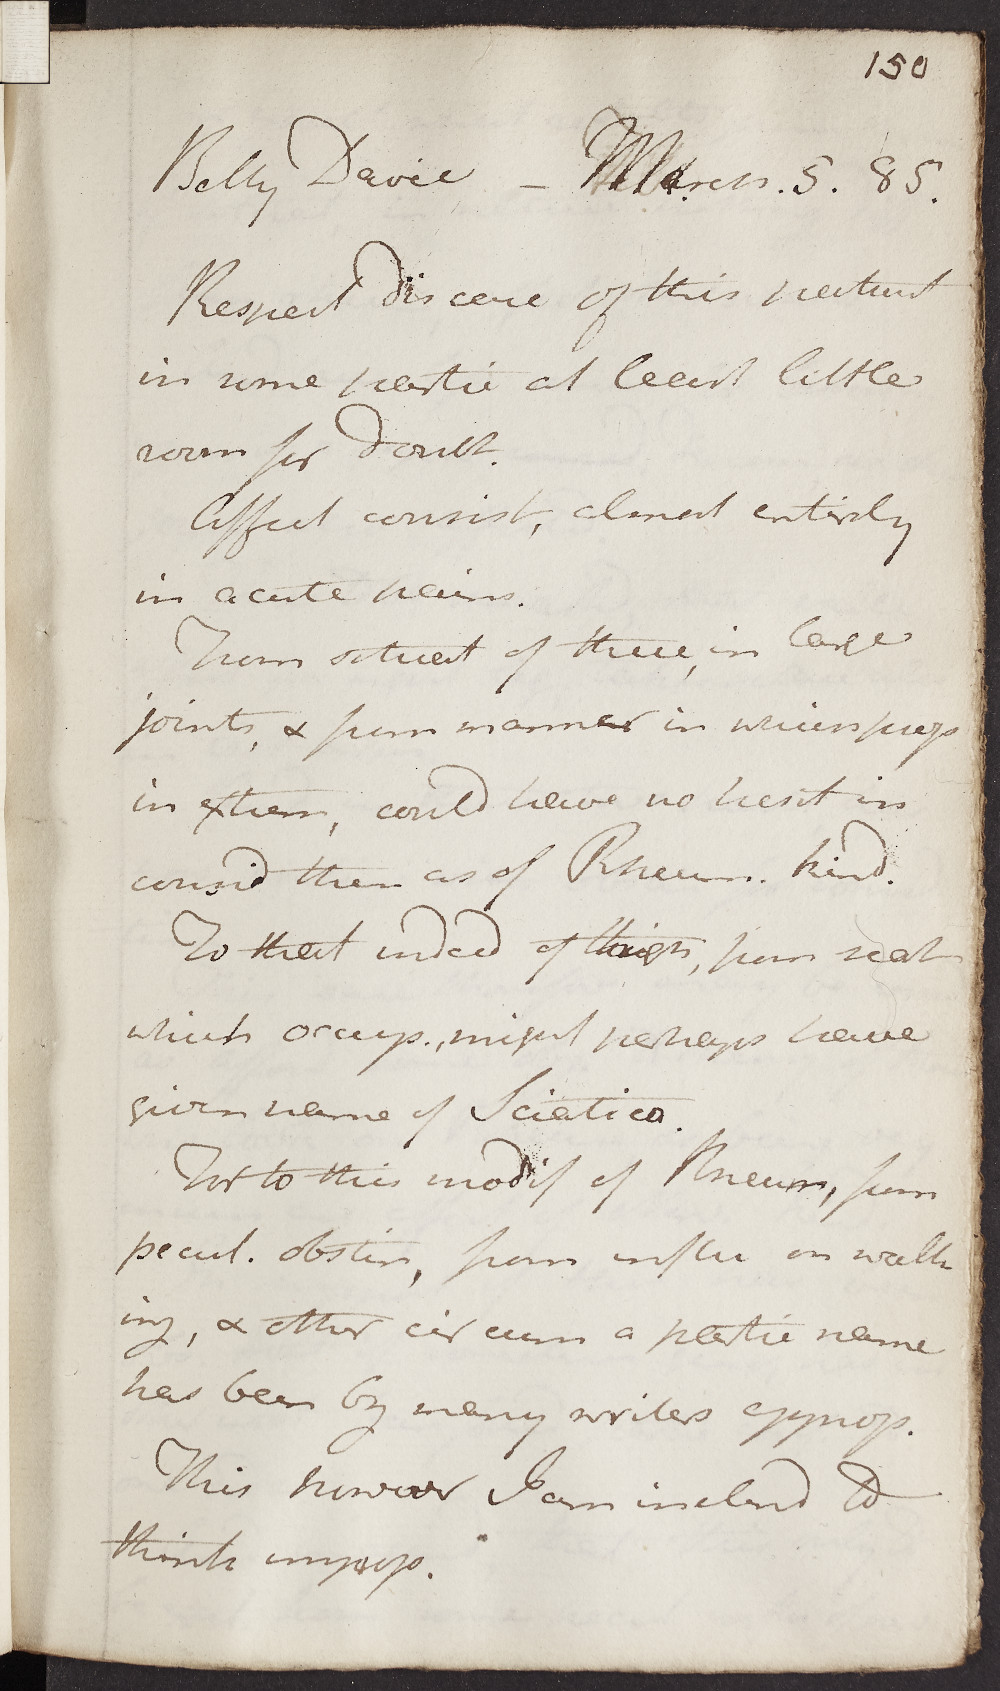 150
Betty Davie - March. 5. 85.
Respect disease of this patient
in some partic at least little
room for doubt.
Affect consist, almost entirely
in acute pains.
From situat of these, in large
joints, & from manner in which progs
in them, could have no hesit in
consid them as of Rheum. kind.
To that indeed of thigh, from seat
which occup., might perhaps have
given name of Sciatica.
For to this modif of Rheum, from
pecul. obstin, from influ on walk
ing, & other circum a partic name
has been by many writers approp.
This however I am inclind to
think improp.